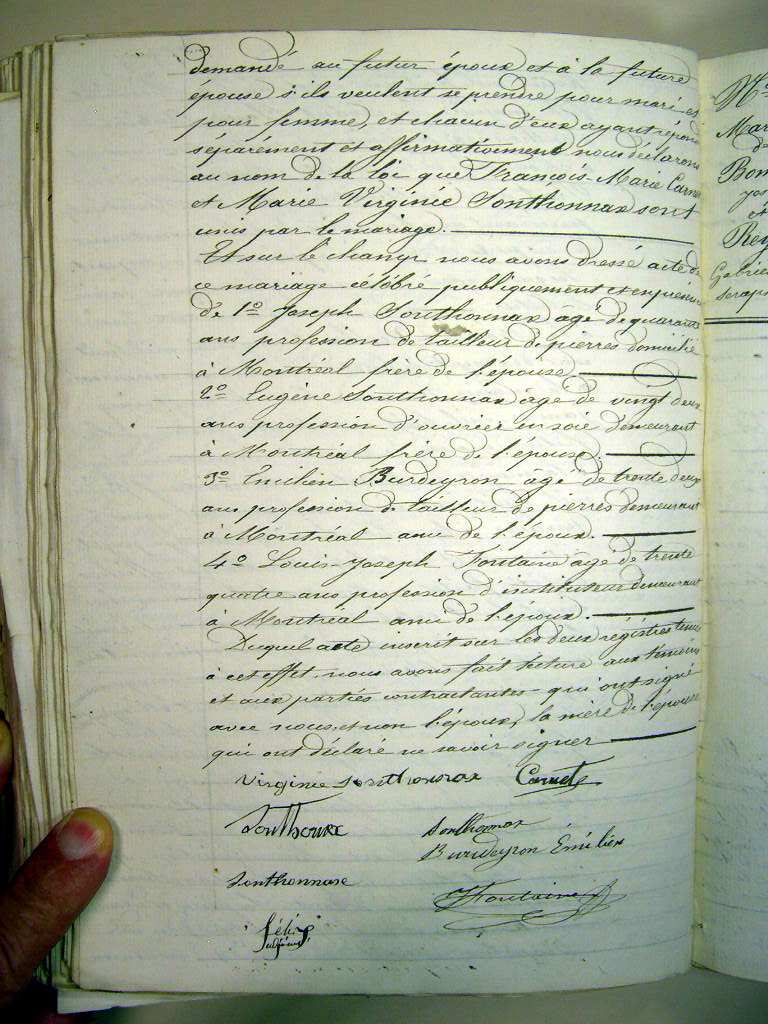 demandé au futur époux et à la future
épouse s'ils veulent se prendre pour mari et
pour femme, et chacun d'eux ayant répondu
séparément et affirmativement nous déclarons
au nom de la loi que François-Marie
et Marie Virginie Sonthonnax sont
unis par le mariage.
Et sur le champ nous avons dressé acte de
ce mariage célébré publiquement et en présence
de 1º Joseph Sonthonnax âgé de quarante
ans profession de tailleur de pierres domicilié
à Montréal frère de l'épouse.
2º Eugène Sonthonnax âgé de vingt deux
ans profession d'ouvrier en soie demeurant
à Montréal frère de l'épouse.
3º Emilien Burdeyron âgé de trente deux
ans profession de tailleur de pierres demeurant
à Montréal ami de l'époux.
4º Louis-Joseph Fontaine âgé de trente
quatre ans profession d'instituteur demeurant
à Montréal ami de l'époux.
Duquel acte inscrit sur les deux régistres tenus
à cet effet nous avons fait lecture aux témoins
et aux parties contractantes qui ont signé
avec nous, et non l'époux, la mère de l'épouse
qui ont déclaré ne savoir signer
Virginie Sonthonnax
Sonthonnax
Burdeyron Émilien
Sonthonnax
Fontaine
Mar
de
Bom
et
Rey
Gabriel
Seraph